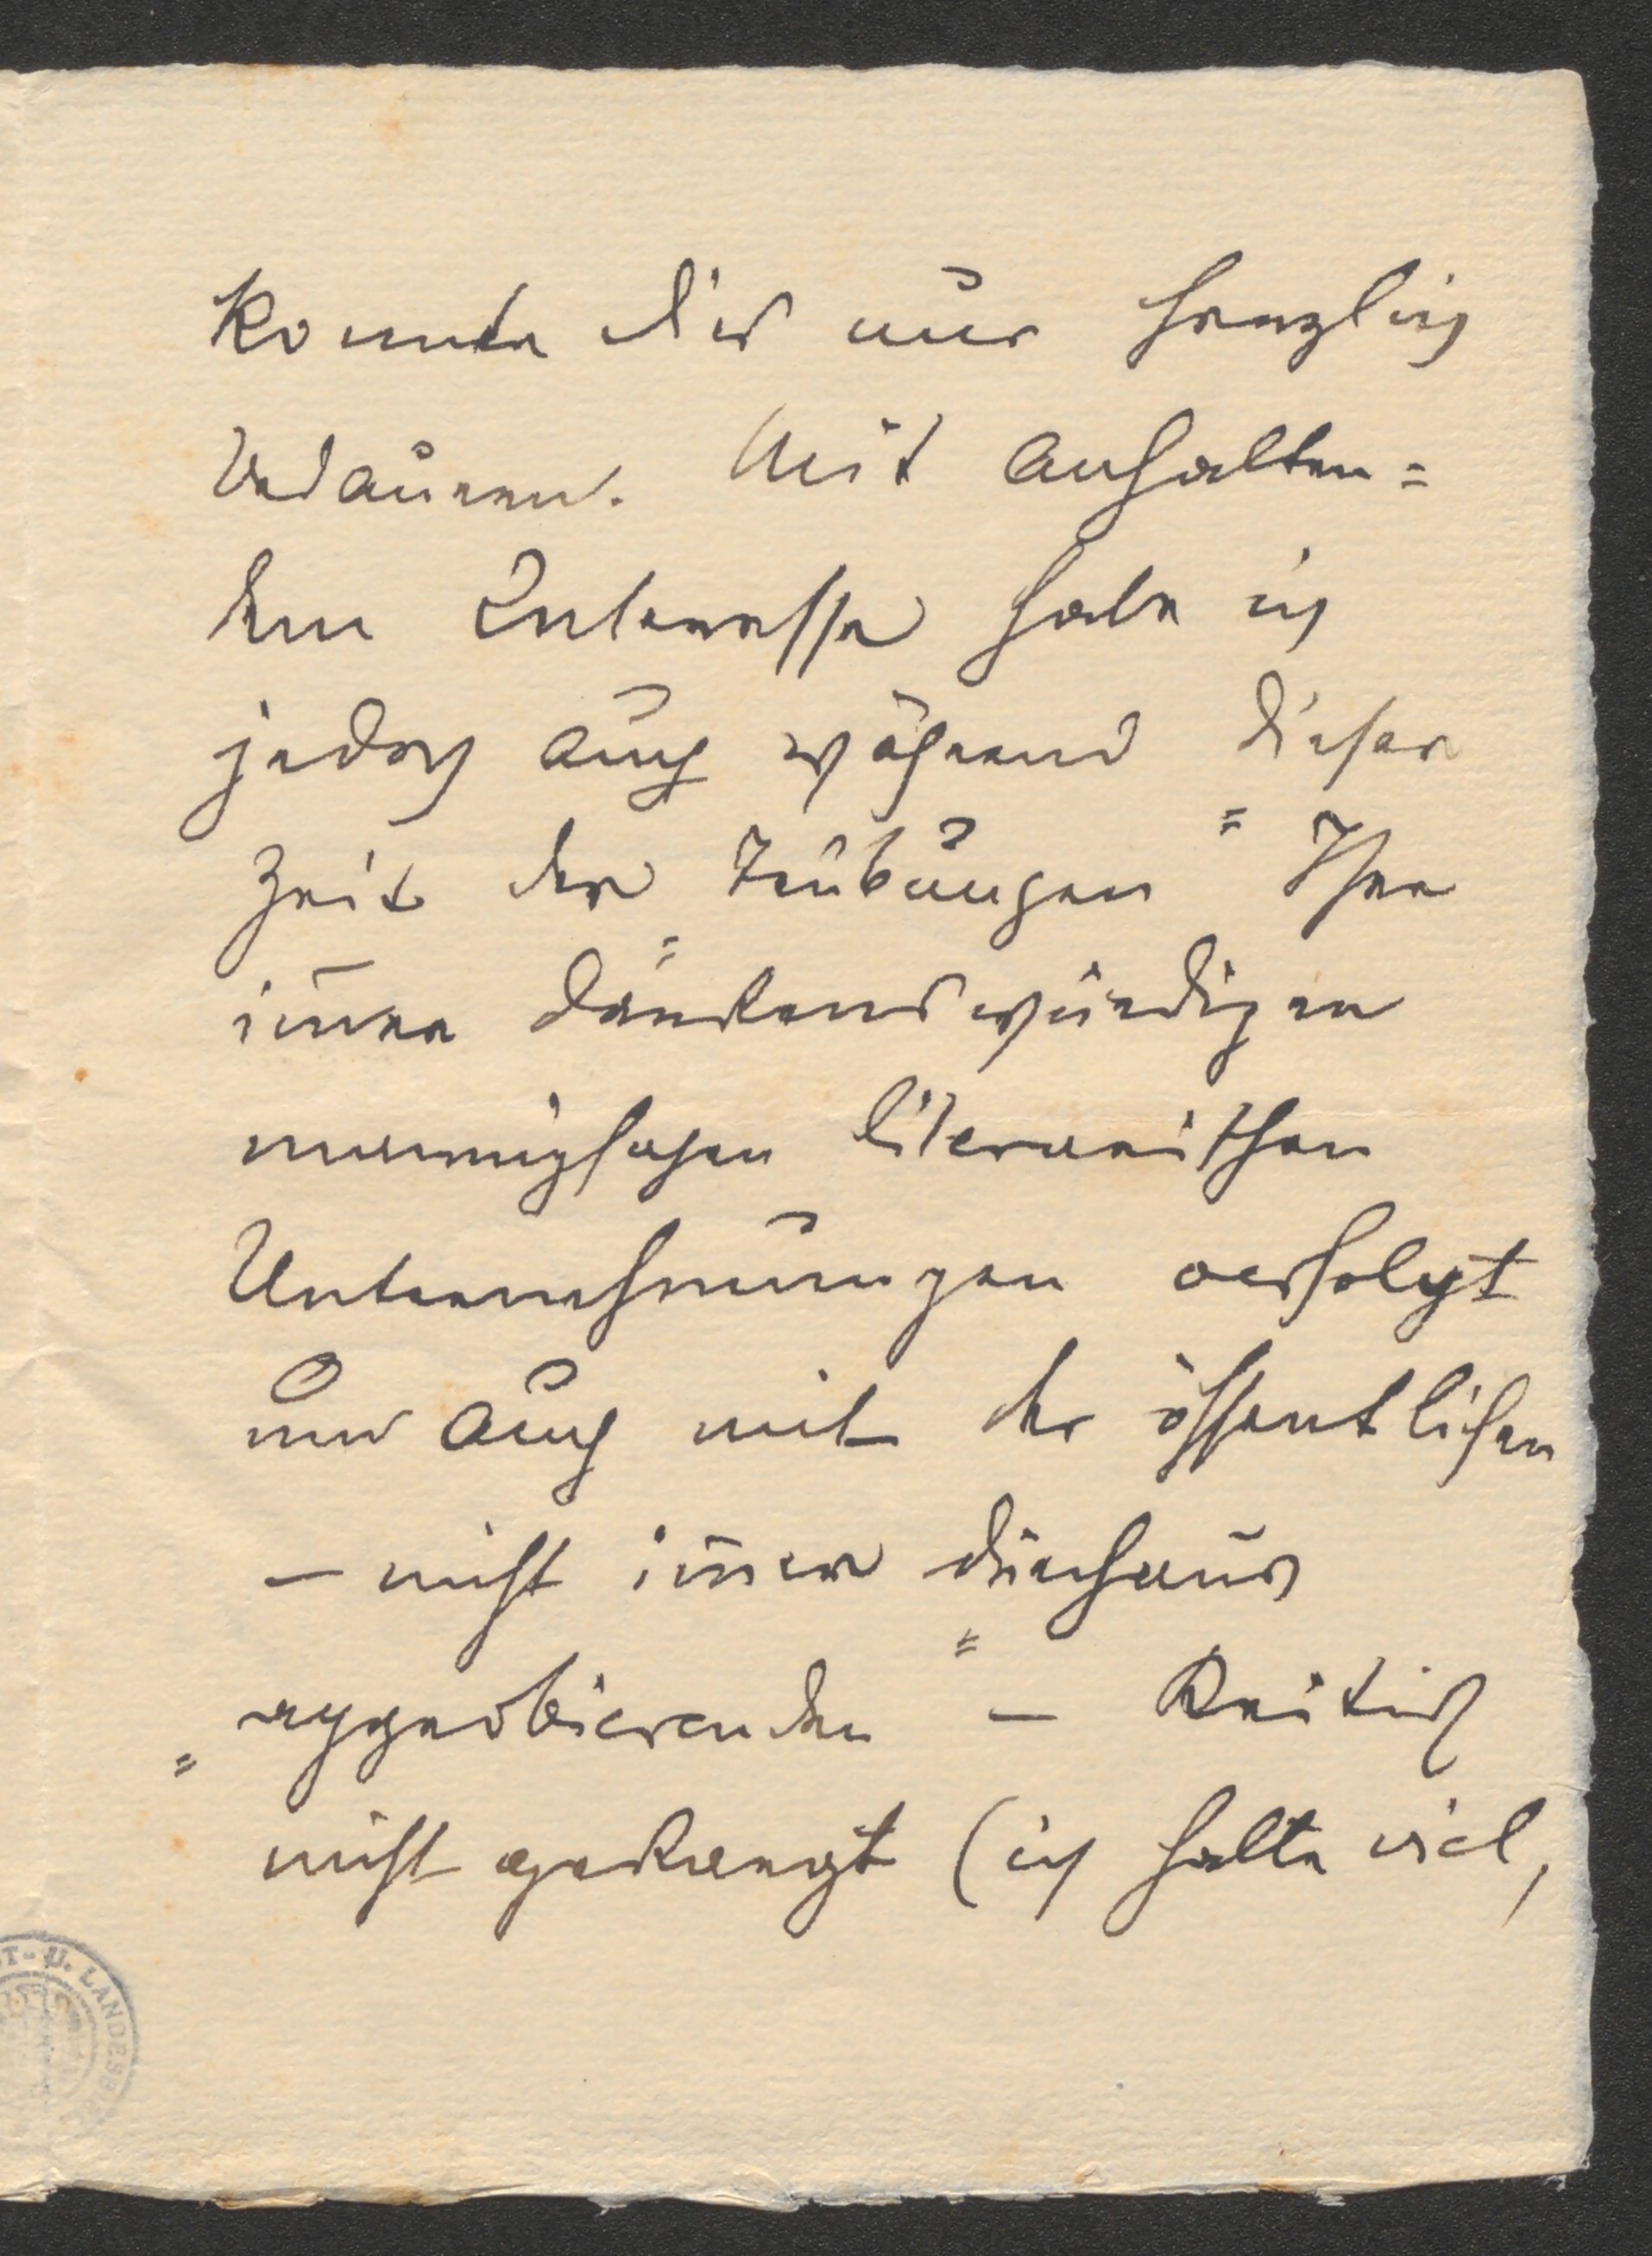 konnte dies nur herzlich
bedauern. Mit anhalten=
dem Interesse habe ich
jedoch auch während dieser
Zeit der „Trübungen“ Ihre
immer dankenswürdigen
mannigfachen literarischen
Unternehmungen verfolgt
und auch mit der öffentlichen
– nicht immer durchaus
„approbierenden“ – Kritik
nicht gekargt (ich halte viel,
T- U. LANDESBI